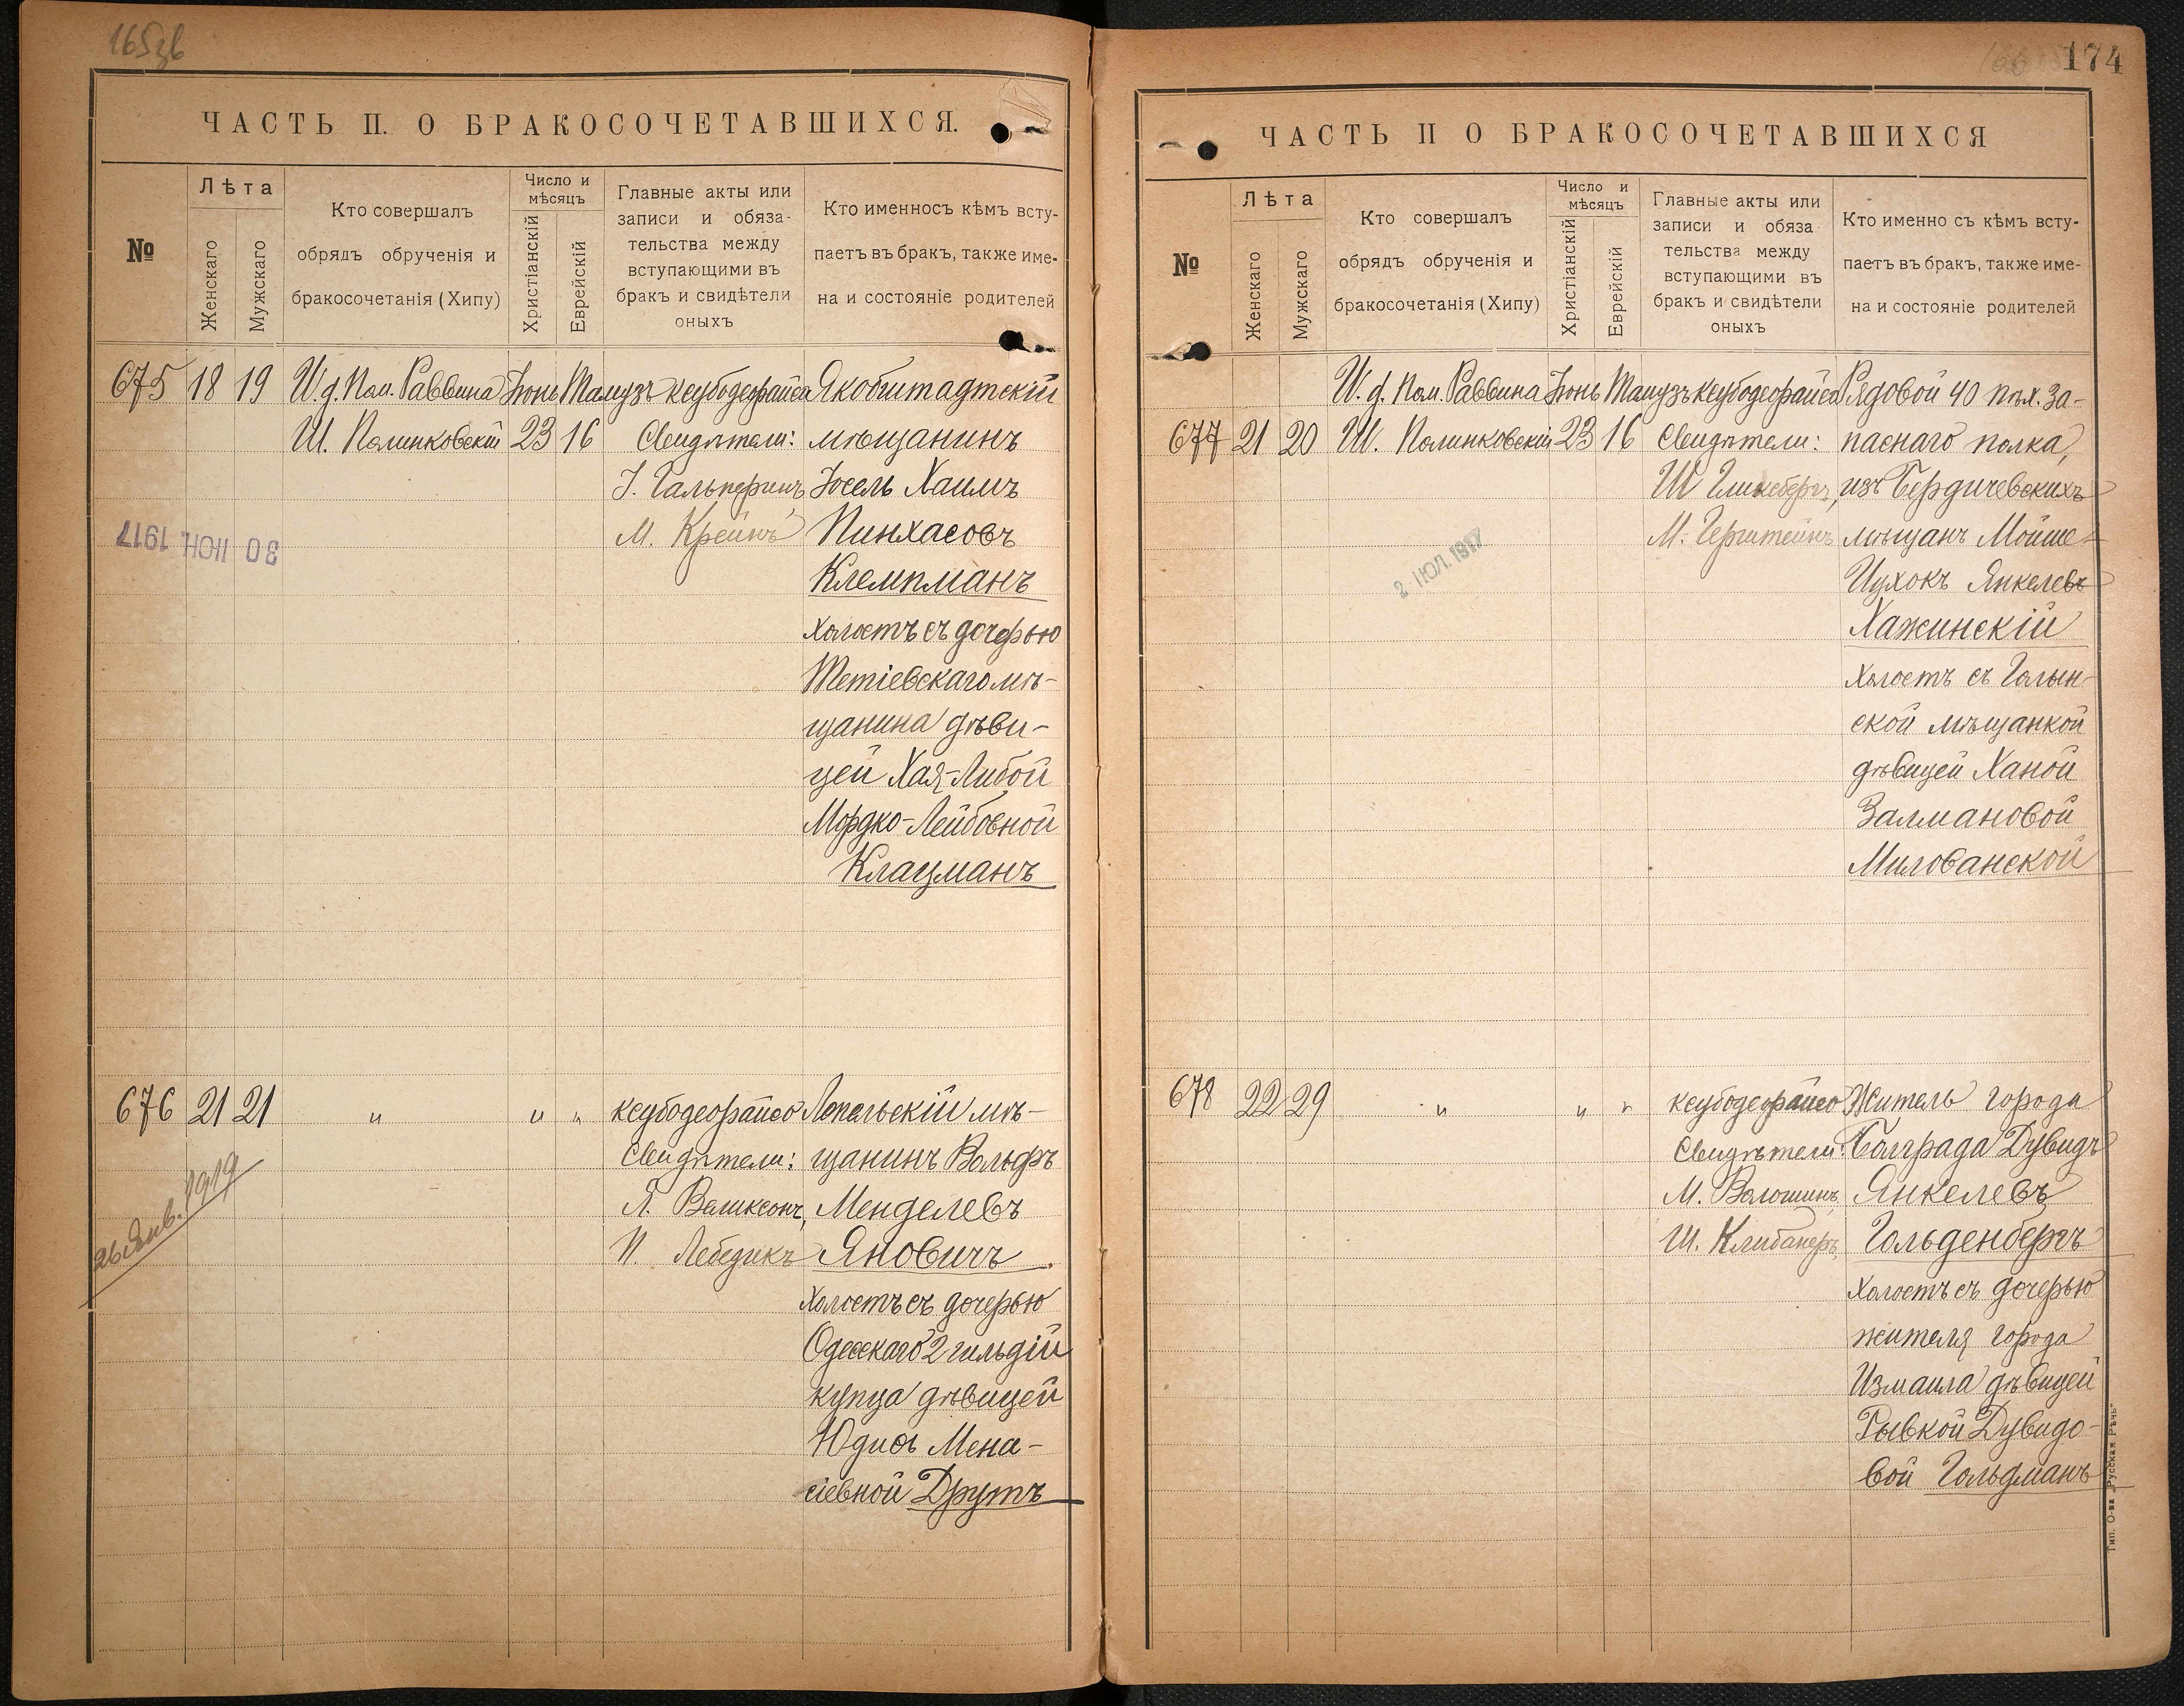 165зв
ЧАСТЬ II. О БРАКОСОЧЕТАВШИХСЯ.
№
Лѣта
Женскаго
Мужскаго
Кто совершалъ
обрядъ обрученія и
бракосочетанія (Хипу)
Число и
мѣсяцъ
Христіанскій
Еврейскій
Главные акты или
записи и обяза-
тельства между
вступающими въ
бракъ и свидѣтели
оныхъ
Кто именносъ кѣмъ всту-
паетъ въ бракъ, также име-
на и состояніе родителей
675 18 19 И.д. Пом. Раввина Іюнь Тамузъ ксубодеорайса Якобштадтскій
Ш. Полинковскій 23 16 Свидѣтели: мѣщанинъ
І. Гальперинъ, Іосель Хаимъ
М. Крейнъ Пинхасовъ
30 ІЮН. 1917
Клемпманъ
холостъ съ дочерью
Тетіевскаго мѣ-
щанина дѣви-
цей Хая-Либой
Мордко-Лейбовной
Клацманъ
676 21 21 " " " ксубодеорайсо Лепельскій мѣ-
Свидѣтели: щанинъ Вольфъ
Л. Великсонъ, Менделевъ
П. Лебедикъ Яновичъ
26 Янв. 1919
холостъ съ дочерью
Одесскаго 2 гильдіи
купца дѣвицей
Юдисъ Мена-
сіевной Друтъ
174
ЧАСТЬ II О БРАКОСОЧЕТАВШИХСЯ
№
Лѣта
Женскаго
Мужскаго
Кто совершалъ
обрядъ обрученія и
бракосочетанія (Хипу)
Число и
мѣсяцъ
Христіанскій
Еврейскій
Главные акты или
записи и обяза
тельства между
вступающими въ
бракъ и свидѣтели
оныхъ
Кто именно съ кѣмъ всту-
паетъ въ бракъ, также име-
на и состояніе родителей
И.д. Пом. Раввина Іюнь Тамузъ ксубодеорайса Рядовой 40 пѣх. За-
677 21 20 Ш. Полинковскій 23 16 Свидѣтели: паснаго полка,
Ш. Гликсбергъ, изъ Бердичевскихъ
М. Герштейнъ, мѣщанъ Мойше-
2 ІЮЛ. 1917
Ицхокъ Янкелевъ
Хажинскій
холостъ съ Голын-
ской мѣщанкой
дѣвицей Ханой
Залмановой
Милованской
678 22 29 " " " ксубодеорайсо Житель города
Свидѣтели: Болграда Дувидъ
М. Волошинъ, Янкелевъ
Ш. Клибанеръ, Гольденбергъ
холостъ съ дочерью
жителя города
Измаила дѣвицей
Рывкой Дувидо-
вой Гольдманъ
Тип. О-ва „Русская Рѣчь“